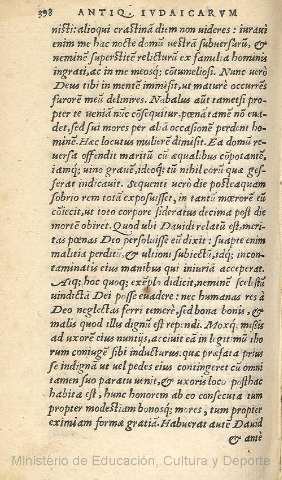 398 ANTIQ. IVDAICARVM
nisti: alioqui crastinā diem non uideres : iuraui
enim me hac nocte domū uestrā subuersurū, &
neminē superstitē relicturū ex familia hominis
ingrati, ac in me meosq; cōtumeliosi. Nunc uerò
Deus tibi in mentē immisit, ut maturè occurrēs
furorē meū delinires. Nabalus aūt tametsi pro=
pter te ueniā nūc cōsequitur, pœnā tamē nō eua=
det, sed sui mores per aliā occasionē perdent ho=
minē. Hæc locutus mulierē dimisit. Ea domū re=
uersa offendit maritū cū æqualibus cōpotantē,
iamq; uino grauē, ideoq; tū nihil eorū quæ ges=
serat indicauit. Sequenti uerò die posteaquam
sobrio rem totā exposuisset, in tantū mœrorē cō
cōiecit, ut toto corpore sideratus decima post die
mortē obiret. Quod ubi Dauidi relatū est, meri=
tas pœnas Deo persoluisse eū dixit : suapte enim
malitia perditū, & ultioni subiectū, idq; incon=
taminatis eius manibus qui iniuriā acceperat.
Atq; hoc quoq; exēplo didicit, neminē scelestū
uindictā Dei posse euadere : nec humanas res à
Deo neglectas ferri temerè, sed bona bonis, &
malis quod illus dignū est rependi. Moxq́; missis
ad uxorē eius nuntijs, acciuit eā in legitimū tho
rum coniugē sibi inducturus. quæ præfata prius
se indignā ut uel pedes eius contingeret cū omni
tamen suo paratu uenit, & uxoris loco posthac
habita est, hunc honorem ab eo consecuta tum
propter modestiam bonosq; mores, tum propter
eximiam formæ gratiā. Habuerat autē Dauid
& antè
Ministerio de Educación, Cultura y Deporte